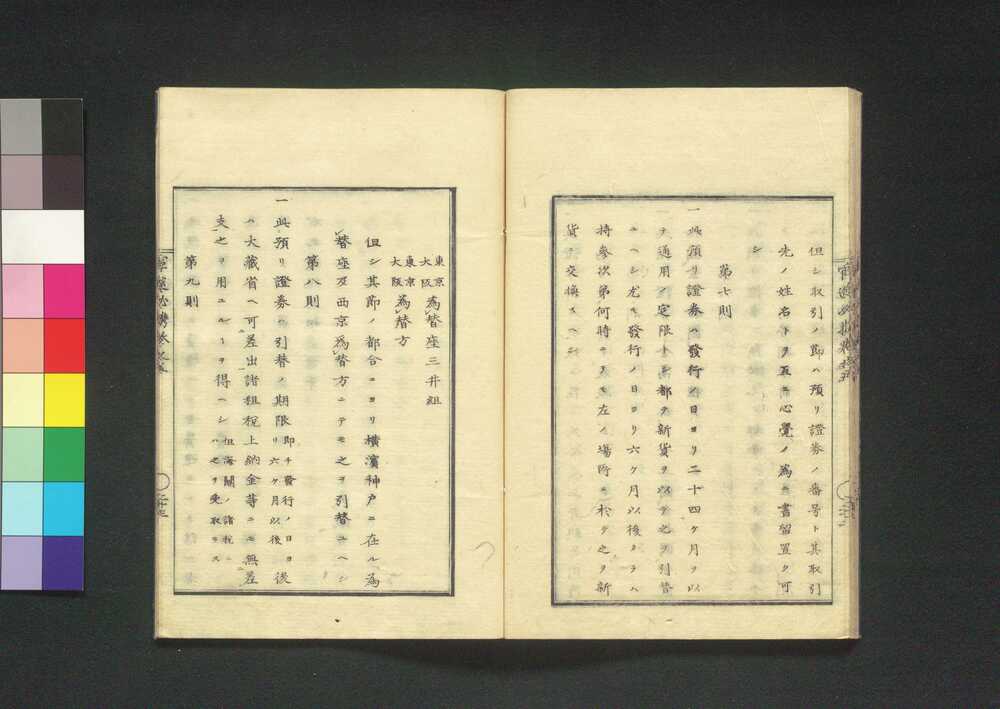 但シ取引ノ節ハ預リ證券ノ番号ト其取引
先ノ姓名トヲ互ニ心覺ノ為ニ書留置ク可
シ
第七則
一此預リ證券ハ發行ノ日ヨリ二十四ケ月ヲ以
テ通用ノ定限トシ都テ新貨ヲ以テ之ヲ引替
ユヘシ尤モ發行ノ日ヨリ六ケ月以後タラハ
持參次第何時ニテモ左ノ場所ニ於テ之ヲ新
貨ニ交換スヘシ
東京
大阪 為替座三井組
東京
大阪 為替方
但シ其節ノ都合ニヨリ横濱神戸ニ在ル為
替座及西京為替方ニテモ之ヲ引替ユヘシ
第八則
一此預リ證券ハ引替ノ期限 即チ發行ノ日ヨ
リ六ケ月以後 後
ハ大藏省ヘ可差出諸租税上納金等ニモ無差
支之ヲ用ユルヿヲ得ヘシ 但海關ノ諸税ニ
ハ之ヲ受取ラス
第九則